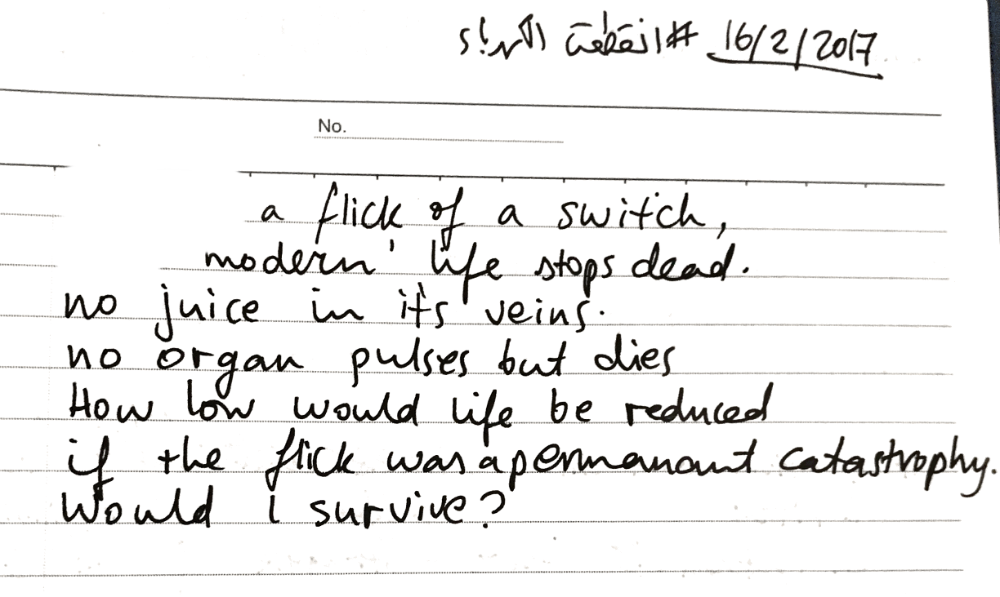 #انقطعت الكهرباء 16/2/2017
No.
a flick of a switch,
modern life stops dead.
no juice in it's veins.
no organ pulses but dies
How low would life be reduced
if the flick was a permanant catastrophy.
Would I survive?